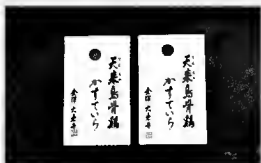 天来烏骨鶏
かすていら
金澤
天来烏骨鶏
かすていら
金澤